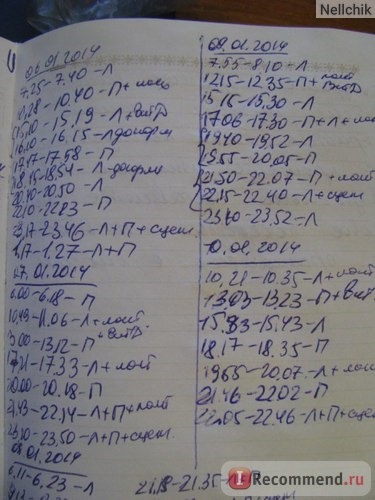 Nellchik
06.01.2014
7.25-7.40-Л
10.28-10.40-П+
15.10-15.19-Л+витД
16.10-16.15-Л докорм
17.47-17.58-П
18.15-18.54-Л-докорм
20.40-20.50-Л
22.10-22.23-П
23.17-23.46-Л+П+сцеж.
1.17-1.27-Л+П
07.01.2014
6.00-6.18-П
10.49-11.06-Л+лакт
13.00-13.12-П+витД
17.21-17.33-Л+лакт
20.00-20.18-П
21.43-22.14-Л+П+лакт
23.30-23.50-Л+П+сцеж.
08.01.2014
6.11-6.23-Л
09.01.2014
7.55-8.10-Л
12.15-12.35-П+лакт
ВитД
15.15-15.30-Л
17.06-17.30-П+Л+лакт
19.40-19.52-Л
19.55-20.05-П
21.50-22.07-П+лакт
22.15-22.40-Л+сцеж
23.40-23.52-Л
10.01.2014
10.21-10.35-Л+лакт
13.03-13.23-П+вит.
15.33-15.43-Л
18.17-18.35-П
19.55-20.07-Л+лакт
21.46-22.02-П
22.05-22.46-Л+П+сцеж
21.18-21.35-Л+П
IRecommend.ru